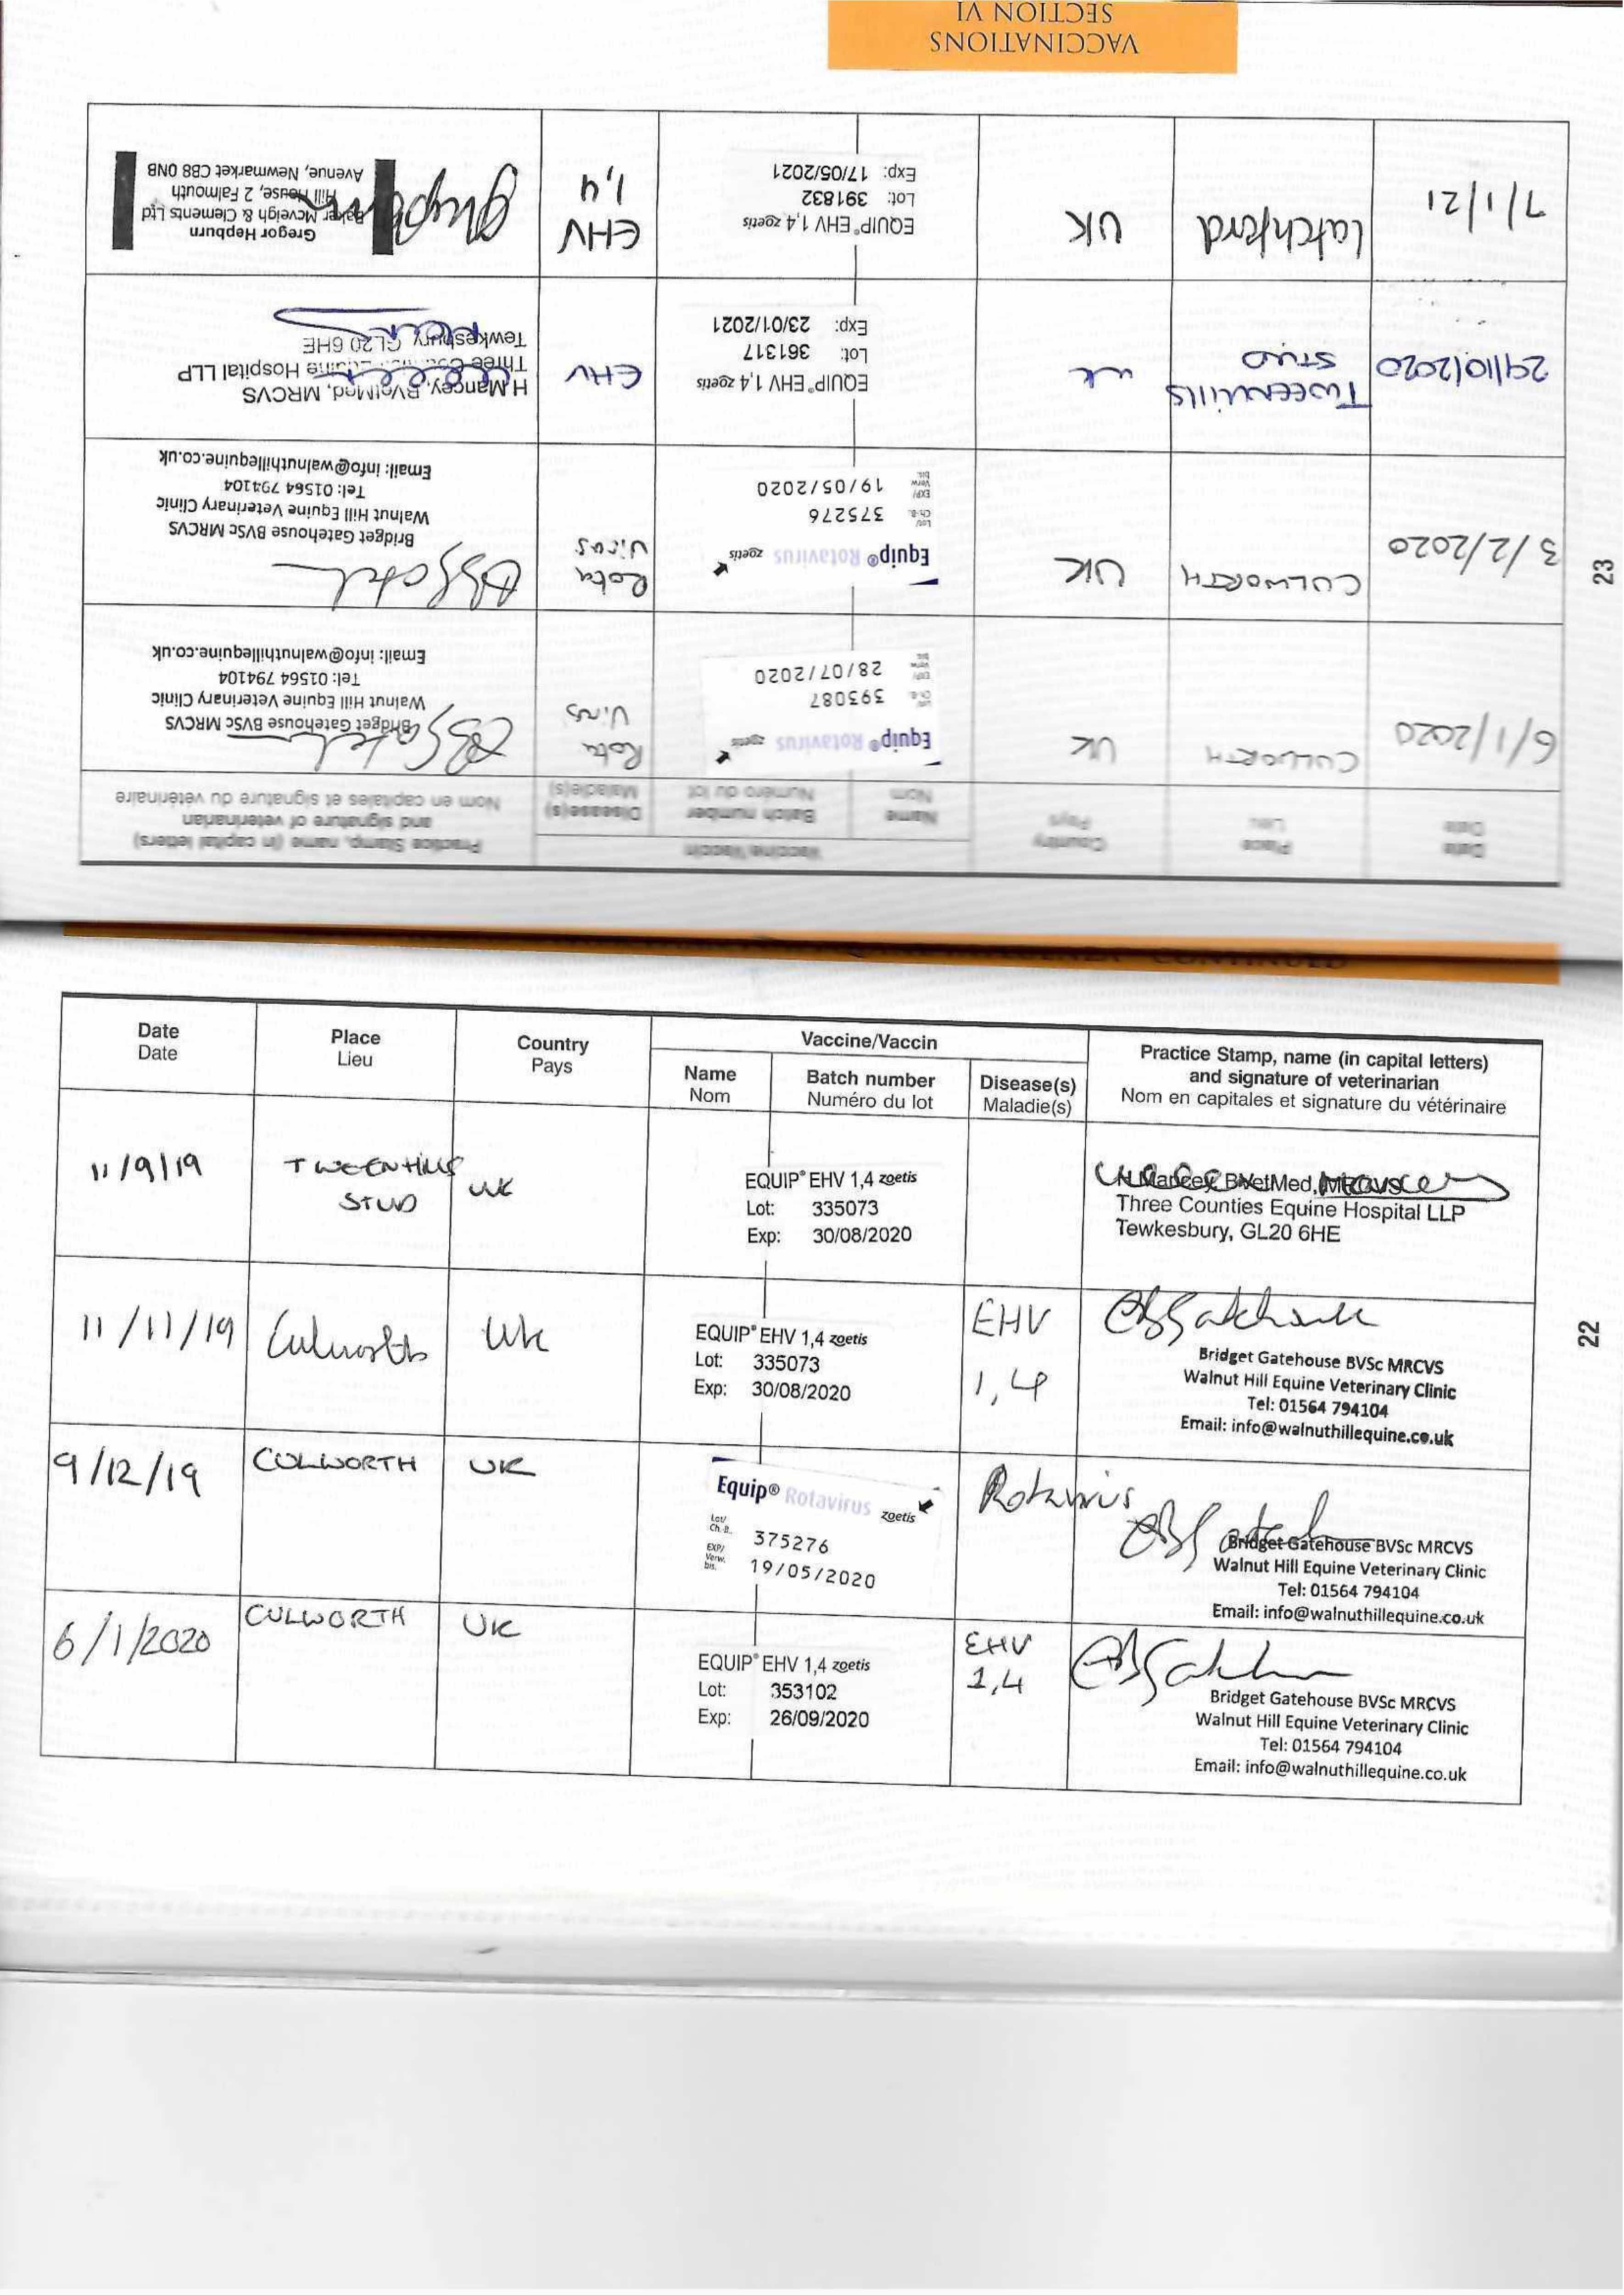 VACCINATIONS
SECTION VI
Date
Date
Place
Lieu
Country
Pays
Vaccine/Vaccin
Name
Nom
Batch number
Numéro du lot
Disease(s)
Maladie(s)
Practice Stamp, name (in capital letters)
and signature of veterinarian
Nom en capitales et signature du vétérinaire
6/1/2020
CULWORTH
UK
Equip® Rotavirus zoetis
Lot/
Ch.-B.
393087
EXP/
Verw.
bis.
28/07/2020
Rota
Virus
Bridget Gatehouse BVSc MRCVS
Walnut Hill Equine Veterinary Clinic
Tel: 01564 794104
Email: info@walnuthillequine.co.uk
3/2/2020
CULWORTH
UK
Equip® Rotavirus zoetis
Lot/
Ch.-B.
375276
EXP/
Verw.
bis.
19/05/2020
Rota
Virus
Bridget Gatehouse BVSc MRCVS
Walnut Hill Equine Veterinary Clinic
Tel: 01564 794104
Email: info@walnuthillequine.co.uk
29/10/2020
TWEENHILLS
STUD
UK
EQUIP® EHV 1,4 zoetis
Lot: 361317
Exp: 23/01/2021
EHV
H Mancey, BVetMed, MRCVS
Three Counties Equine Hospital LLP
Tewkesbury, GL20 6HE
7/1/21
Latchford
UK
EQUIP® EHV 1,4 zoetis
Lot: 391832
Exp: 17/05/2021
EHV
1,4
Gregor Hepburn
Baker Mcveigh & Clements Ltd
Hill House, 2 Falmouth
Avenue, Newmarket CB8 0NB
23
CONTINUED
Date
Date
Place
Lieu
Country
Pays
Vaccine/Vaccin
Name
Nom
Batch number
Numéro du lot
Disease(s)
Maladie(s)
Practice Stamp, name (in capital letters)
and signature of veterinarian
Nom en capitales et signature du vétérinaire
11/9/19
TWEENHILLS
STUD
UK
EQUIP® EHV 1,4 zoetis
Lot: 335073
Exp: 30/08/2020
H Mancey, BVetMed, MRCVS
Three Counties Equine Hospital LLP
Tewkesbury, GL20 6HE
11/11/19
Culworth
UK
EQUIP® EHV 1,4 zoetis
Lot: 335073
Exp: 30/08/2020
EHV
1,4
Bridget Gatehouse BVSc MRCVS
Walnut Hill Equine Veterinary Clinic
Tel: 01564 794104
Email: info@walnuthillequine.co.uk
9/12/19
CULWORTH
UK
Equip® Rotavirus zoetis
Lot/
Ch.-B.
375276
EXP/
Verw.
bis.
19/05/2020
Rotavirus
Bridget Gatehouse BVSc MRCVS
Walnut Hill Equine Veterinary Clinic
Tel: 01564 794104
Email: info@walnuthillequine.co.uk
6/1/2020
CULWORTH
UK
EQUIP® EHV 1,4 zoetis
Lot: 353102
Exp: 26/09/2020
EHV
1,4
Bridget Gatehouse BVSc MRCVS
Walnut Hill Equine Veterinary Clinic
Tel: 01564 794104
Email: info@walnuthillequine.co.uk
22